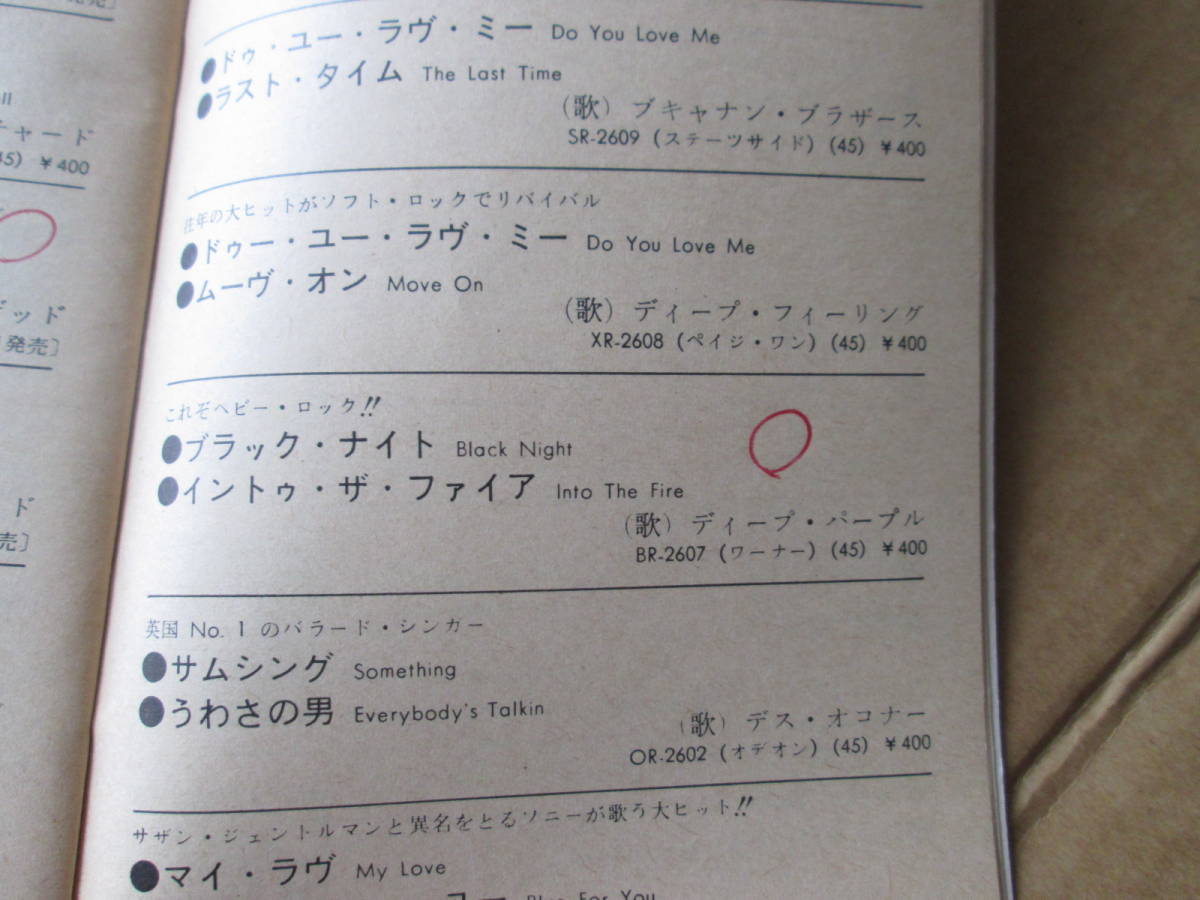 発売〕
ll
チャード
45) ¥400
デッド
発売〕
ド
売〕
●ドゥ・ユー・ラヴ・ミー Do You Love Me
●ラスト・タイム The Last Time
(歌) ブキャナン・ブラザース
SR-2609 (ステーツサイド) (45) ¥400
往年の大ヒットがソフト・ロックでリバイバル
●ドゥー・ユー・ラヴ・ミー Do You Love Me
●ムーヴ・オン Move On
(歌) ディープ・フィーリング
XR-2608 (ペイジ・ワン) (45) ¥400
これぞヘビー・ロック!!
●ブラック・ナイト Black Night
●イントゥ・ザ・ファイア Into The Fire
(歌) ディープ・パープル
BR-2607 (ワーナー) (45) ¥400
英国 No. 1 のバラード・シンガー
●サムシング Something
●うわさの男 Everybody's Talkin
(歌) デス・オコナー
OR-2602 (オデオン) (45) ¥400
サザン・ジェントルマンと異名をとるソニーが歌う大ヒット!!
●マイ・ラヴ My Love
ユー Blue For You